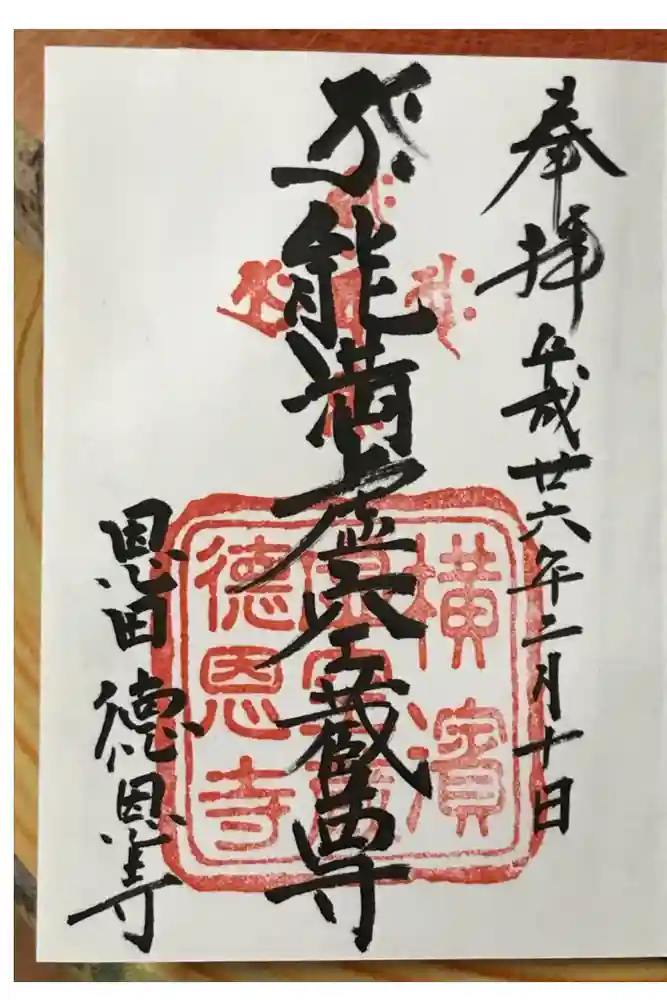 奉拝 平成廿六年二月十日
能満虚空蔵尊
恩田 徳恩寺
横濱
徳恩寺